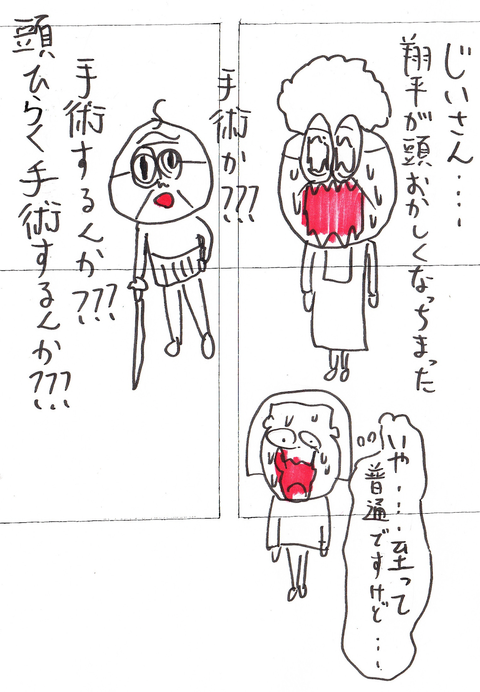 じいさん....
翔平が頭おかしくなっちまった
いや....至って
普通ですけど...
手術か???
手術するんか???
頭ひらく手術するんか???